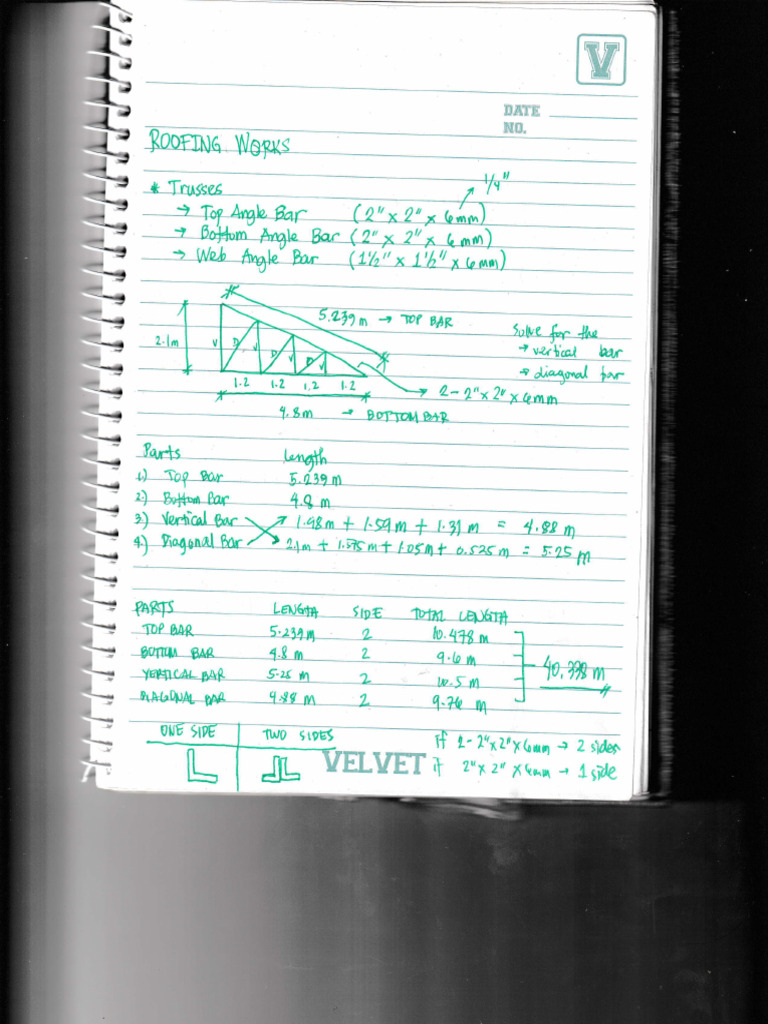 V
DATE
NO.
ROOFING WORKS
1/4"
* Trusses
→ Top Angle Bar (2" x 2" x 6mm)
→ Bottom Angle Bar (2" x 2" x 6mm)
→ Web Angle Bar (1 1/2" x 1 1/2" x 6mm)
5.239 m → TOP BAR
2.1m
V D V D V D V
Solve for the
→ vertical bar
→ diagonal bar
1.2 1.2 1.2 1.2
2 - 2" x 2" x 6mm
4.8 m → BOTTOM BAR
Parts Length
1) Top Bar 5.239 m
2) Bottom Bar 4.8 m
3) Vertical Bar 1.98m + 1.59m + 1.31 m = 4.88 m
4) Diagonal Bar 2.1m + 1.575m + 1.05m + 0.525m = 5.25 m
PARTS LENGTH SIDE TOTAL LENGTH
TOP BAR 5.239m 2 10.478 m
BOTTOM BAR 4.8 m 2 9.6 m
40.338 m
VERTICAL BAR 5.25 m 2 10.5 m
DIAGONAL BAR 4.88 m 2 9.76 m
ONE SIDE TWO SIDES
If 2-2"x2"x6mm → 2 sides
VELVET
if 2"x2"x6mm → 1 side